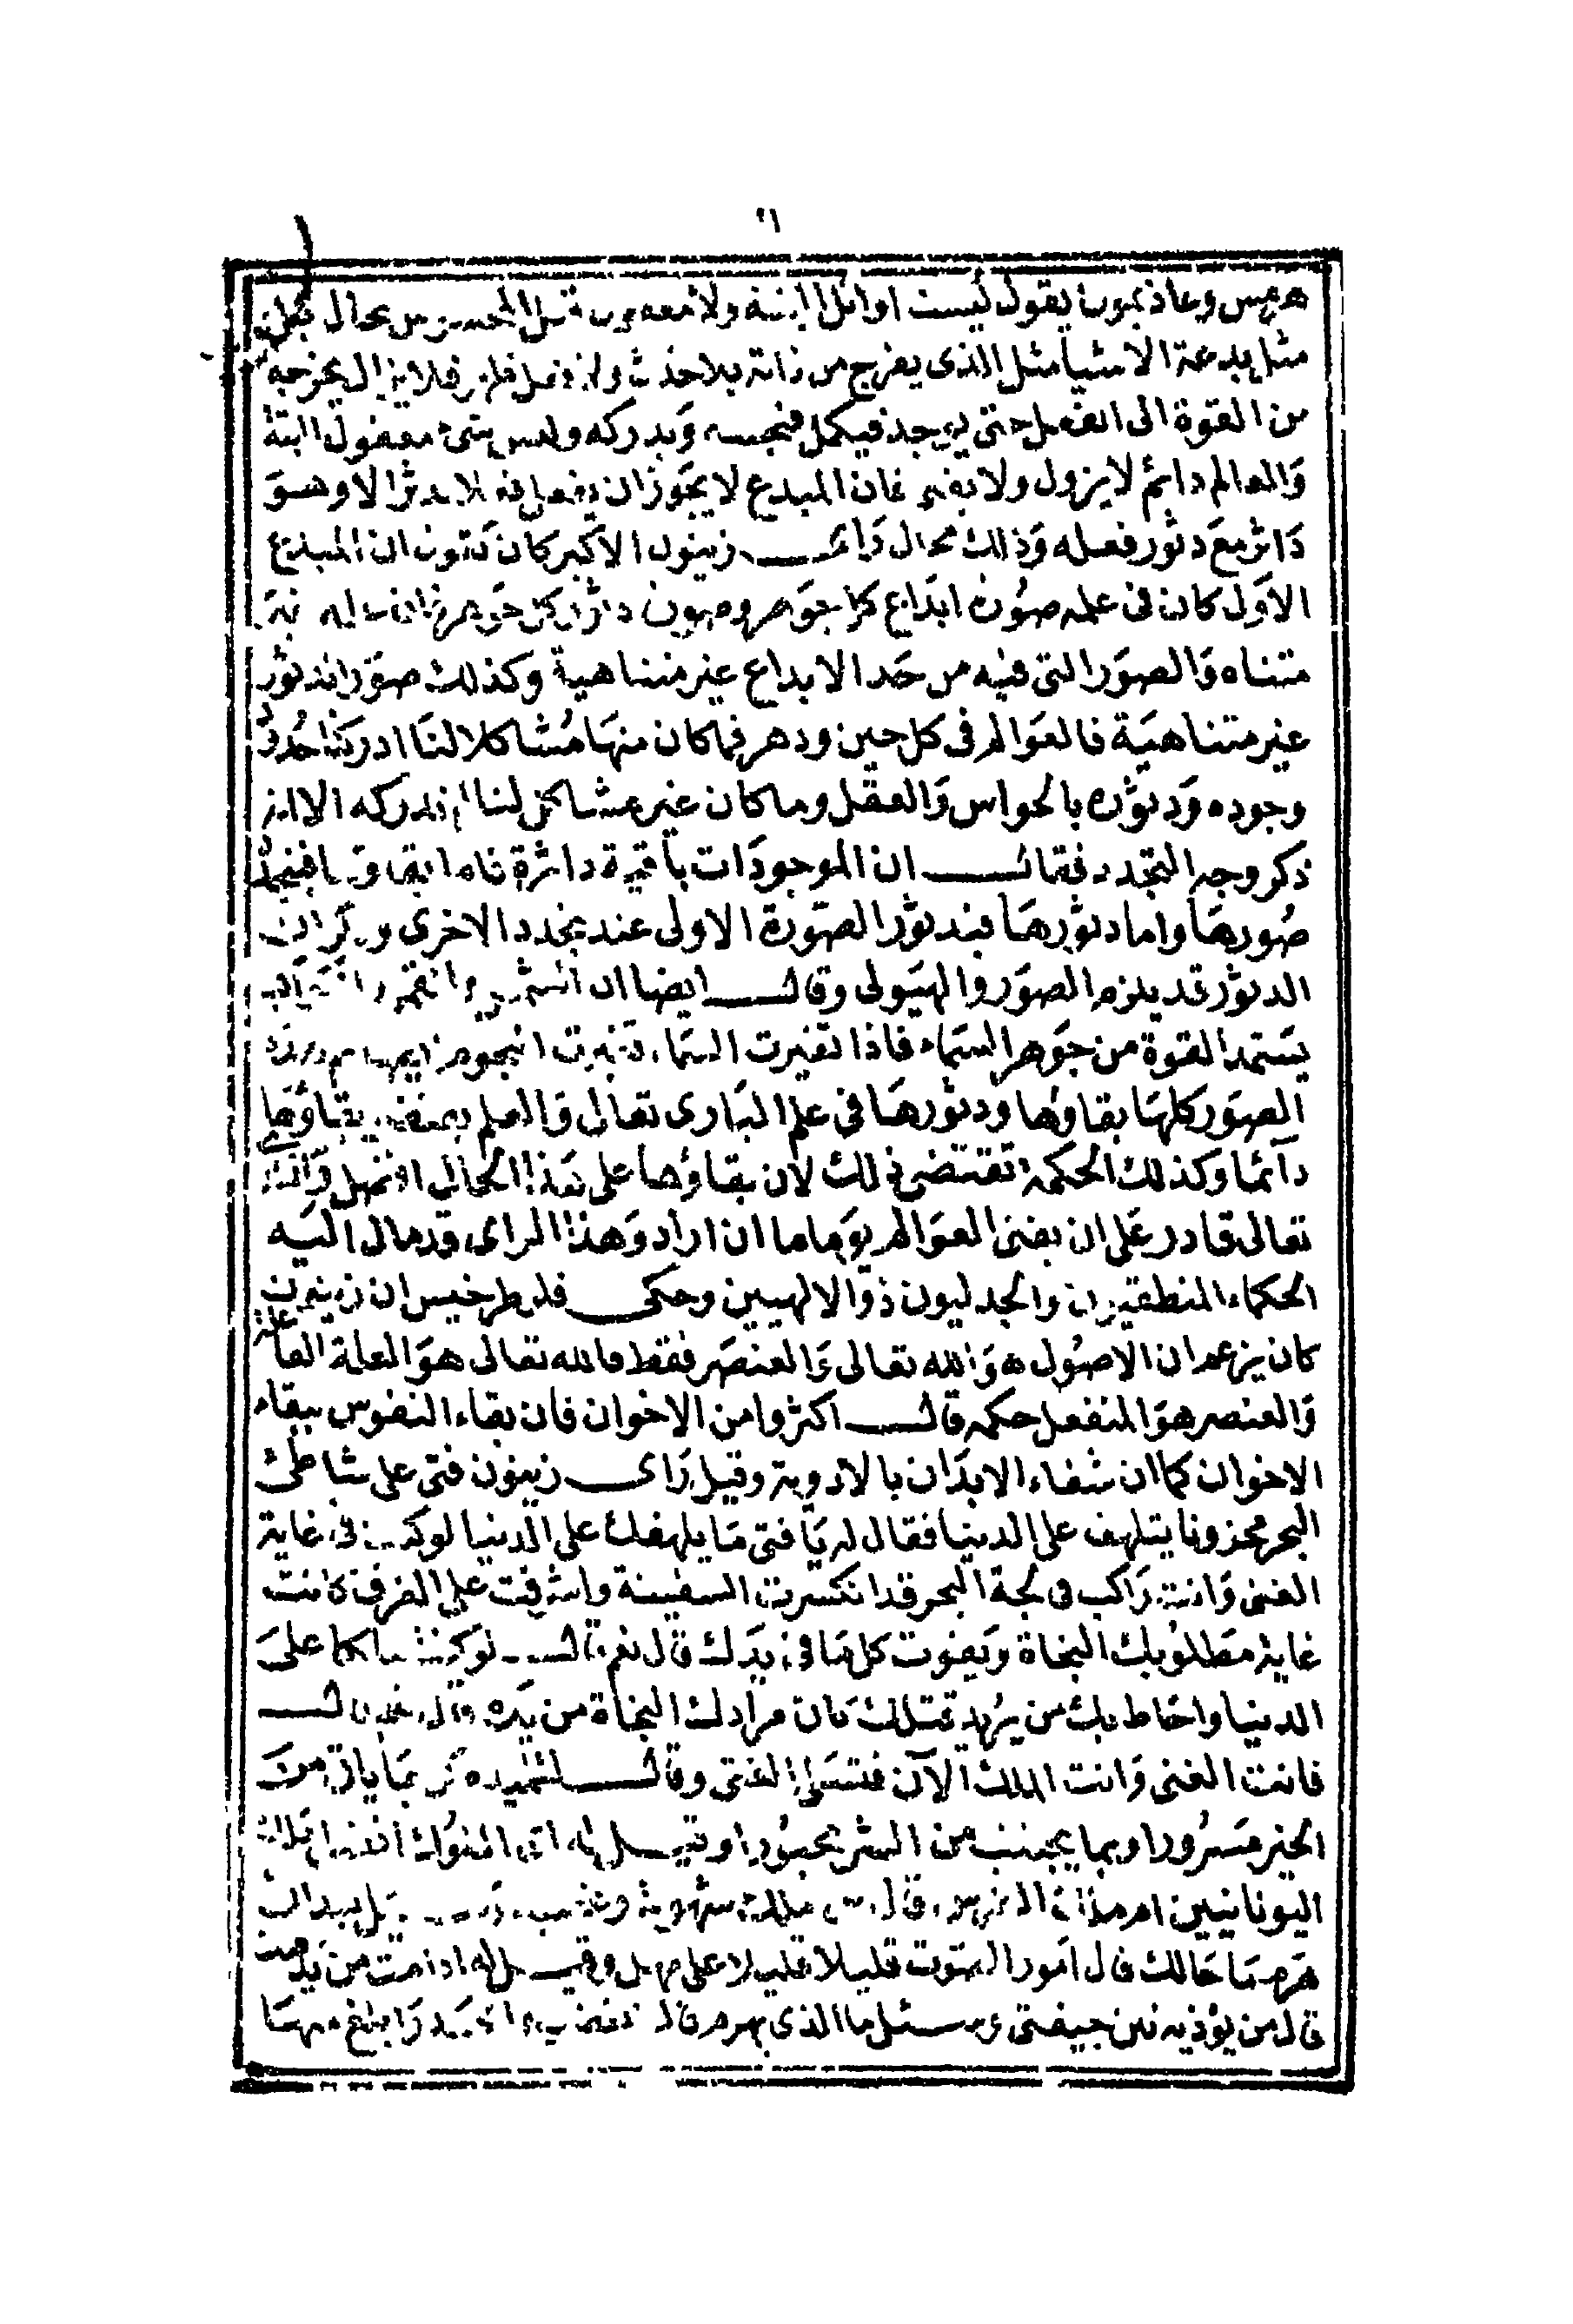 هرمس وعاذيمون يقول ليست اوائل البتة ولا معقول قبل المحسوس بحال بل
مثل بدعة الاشيا مثل الذى يفرج من ذاته بلا حدث ولا فعل ظهر فلا يزال يخرجه
من القوة الى الفعل حتى يوجد فيكمل فنحسه ويدركه وليس شئ معقول البتة
والعالم دائم لا يزول ولا يفنى فان المبدع لا يجوز ان يفعل فعلا يدثر الا وهو
داثر مع دثور فعله وذلك محال راى زينون الاكبر كان يقول ان المبدع
الاول كان فى علمه صورة ابداع كل جوهر وصورة دثور كل جوهر فان علمه غير
متناه والصور التى فيه من حد الابداع غير متناهية وكذلك صور الدثور
غير متناهية فالعوالم فى كل حين ودهر فما كان منها مشاكلا لنا ادركنا حدوث
وجوده ودثوره بالحواس والعقل وما كان غير مشاكل لنا لم ندركه الا انه
ذكر وجه التجدد فقال ان الموجودات باقية داثرة فاما بقاوها فبتجدد
صورها واما دثورها فبدثور الصورة الاولى عند تجدد الاخرى وذكر ان
الدثور قد يلزم الصور والهيولى وقال ايضا ان الشمس والقمر والكواكب
يستمد القوة من جوهر السماء فاذا تغيرت السماء تغيرت النجوم ايضا ثم هذه
الصور كلها بقاؤها ودثورها فى علم البارى تعالى والعلم يقتضى بقاؤها
دآئما وكذلك الحكمة تقتضى ذلك لان بقاؤها على هذا الحال افضل والله
تعالى قادر على ان يفنى العوالم يوما ما ان اراد وهذا الراى قد مال اليه
الحكماء المنطقيون والجدليون ذوا الالهيين وحكى فلوطرخيس ان زينون
كان يزعم ان الاصول هو الله تعالى والعنصر فقط فالله تعالى هو العلة الفاعلة
والعنصر هو المنفعل حكمه قال اكثروا من الاخوان فان بقاء النفوس ببقاء
الاخوان كما ان شفاء الابدان بالادوية وقيل راى زينون فتى على شاطئ
البحر محزونا يتلهف على الدنيا فقال له يا فتى ما يلهفك على الدنيا لو كنت فى غاية
الغنى وانت راكب فى لجة البحر قد انكسرت السفينة واشرفت على الغرق كانت
غاية مطلوبك النجاة ويفوت كل ما فى يدك قال نعم قال لو كنت ملكا على
الدنيا واحاط بك من يريد قتلك كان مرادك النجاة من يده قال نعم قال
فانت الغنى وانت الملك الآن فتسلى الفتى وقال لتلميذه كن بما ياتى من
الخير مسرورا وبما يجتنب من الشر محبورا وقيل له اى الملوك افضل املك
اليونانيين ام ملك الفرس قال من ملك شهوته وغضبه وسئل بعد ان
هرم ما حالك قال اموت قليلا قليلا على مهل وقيل له اذا مت من يدفنك
قال من يؤذيه نتن جيفتى وسئل ما الذى يهرم قال الغضب والحسد وابلغ منهما